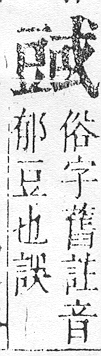 俗字舊註音
郁豆也誤